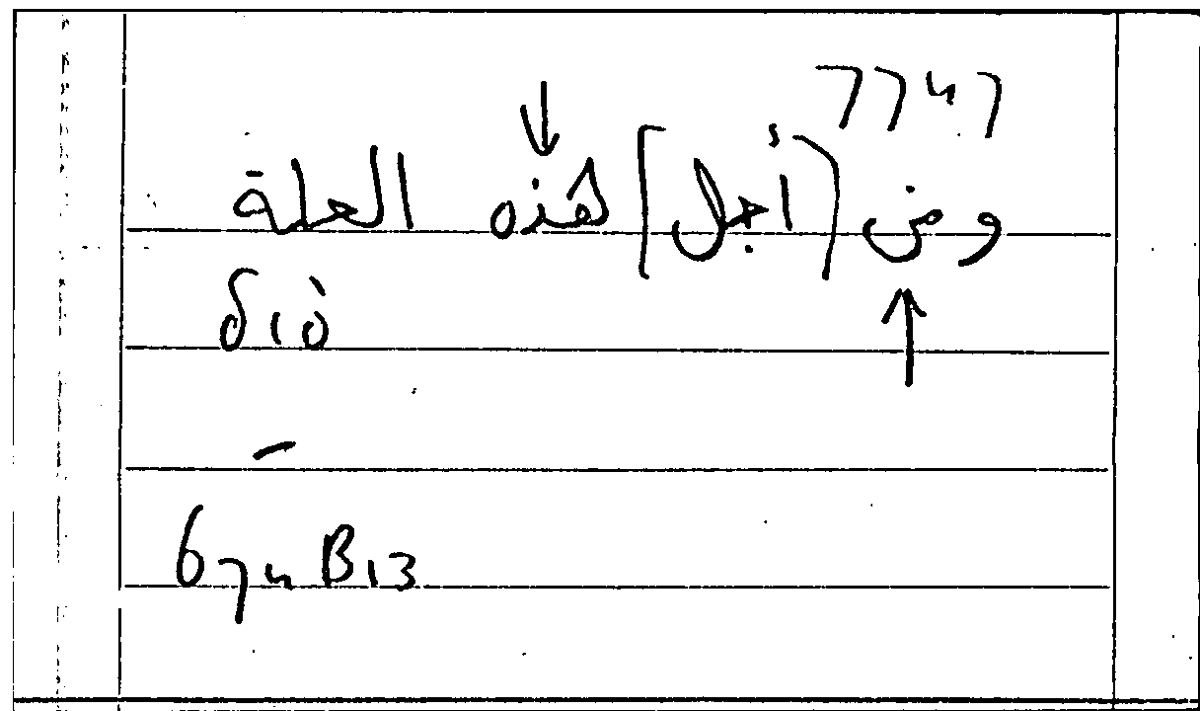 7747
ومن [أجل] هذه العلة
διὸ
–
674 B13